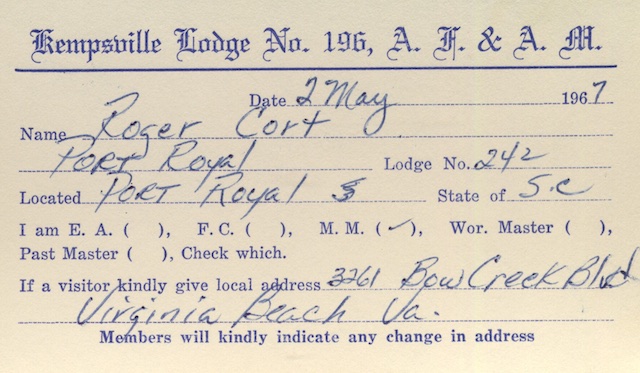 Kempsville Lodge No. 196, A. F. & A. M.
Date 2 May 1967
Name Roger Cort
Port Royal Lodge No. 242
Located Port Royal State of S.C
I am E. A. ( ), F. C. ( ), M. M. (✓), Wor. Master ( ),
Past Master ( ), Check which.
If a visitor kindly give local address 3261 Bow Creek Blvd
Virginia Beach Va.
Members will kindly indicate any change in address